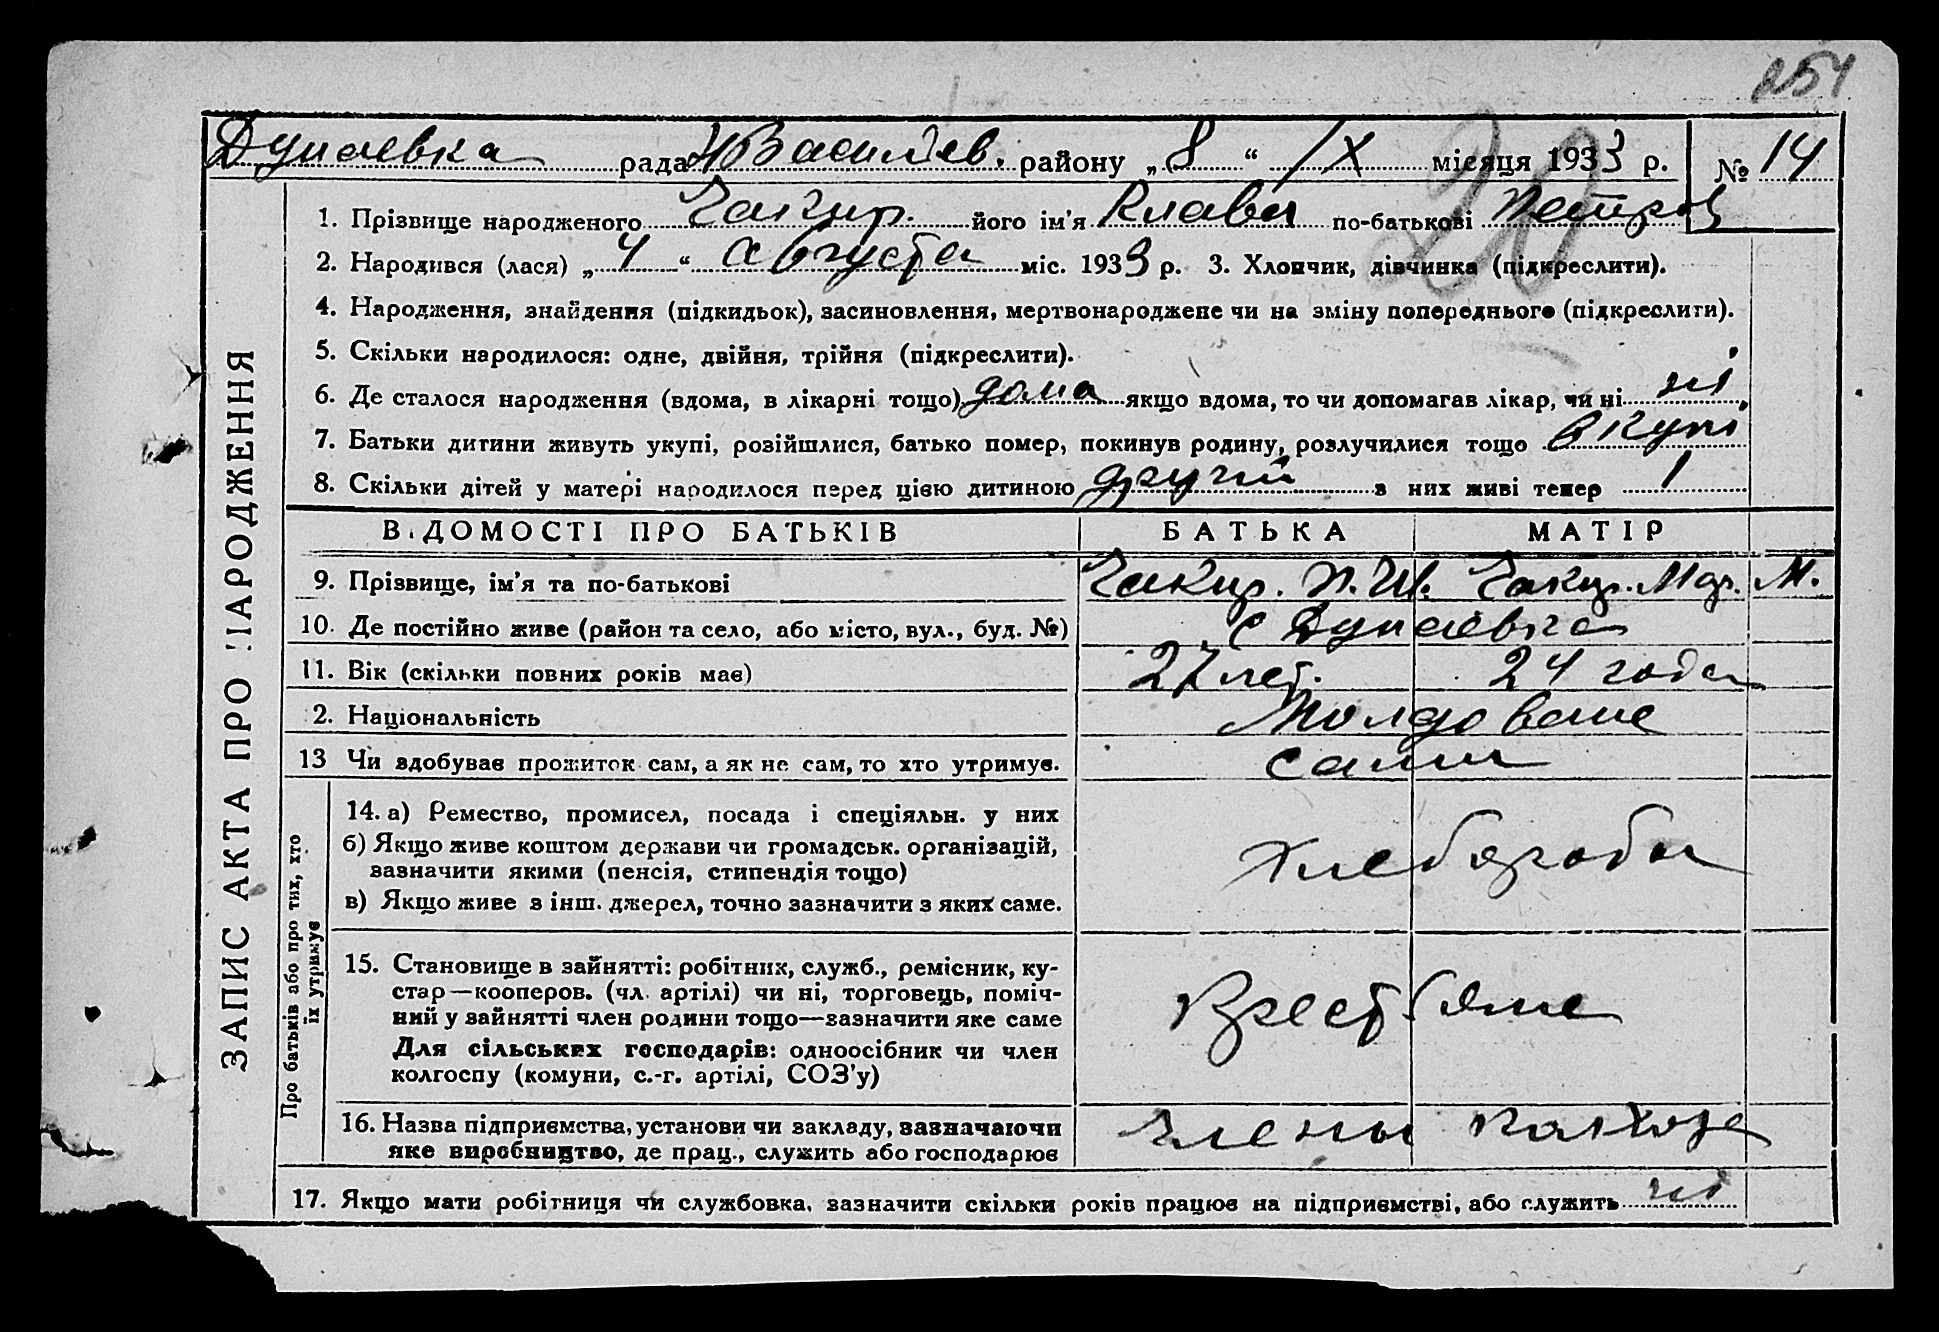 254
Дунаевка рада Н Василіев. району „ 8 “ IX місяця 1933 р. № 14
20
1. Прізвище народженого Чакир. його ім'я Клава по-батькові Петров
2. Народився (лася) „ 4 “ Августа міс. 1933 р. 3. Хлопчик, дівчинка (підкреслити).
4. Народження, знайдення (підкидьок), засиновлення, мертвонароджене чи на зміну попереднього (підкреслити).
5. Скільки народилося: одне, двійня, трійня (підкреслити).
6. Де сталося народження (вдома, в лікарні тощо) дома якщо вдома, то чи допомагав лікар, чи ні ні
7. Батьки дитини живуть укупі, розійшлися, батько помер, покинув родину, розлучилися тощо вкупі
8. Скільки дітей у матері народилося перед цією дитиною другий з них живі тепер 1
ЗАПИС АКТА ПРО НАРОДЖЕННЯ
ВІДОМОСТІ ПРО БАТЬКІВ БАТЬКА МАТІР
9. Прізвище, ім'я та по-батькові Чакир. П. И. Чакир. Мар. М.
10. Де постійно живе (район та село, або місто, вул., буд. №) с Дунаевка
11. Вік (скільки повних років має) 27 лет. 24 года
2. Національність Молдоване
13 Чи здобуває прожиток сам, а як не сам, то хто утримує. сами
Про батьків або про тих, хто
їх утримує
14. а) Ремество, промисел, посада і спеціяльн. у них
б) Якщо живе коштом держави чи громадськ. організацій,
зазначити якими (пенсія, стипендія тощо)
в) Якщо живе з інш. джерел, точно зазначити з яких саме.
Хлебороби
15. Становище в зайнятті: робітник, служб., ремісник, ку-
стар—кооперов. (чл. артілі) чи ні, торговець, поміч-
ний у зайнятті член родини тощо—зазначити яке саме
Для сільських господарів: одноосібник чи член
колгоспу (комуни, с.-г. артілі, СОЗ'у)
Крестьяне
16. Назва підприємства, установи чи закладу, зазначаючи
яке виробництво, де прац., служить або господарює
Члены колхоза
17. Якщо мати робітниця чи службовка, зазначити скільки років працює на підприємстві, або служить ні